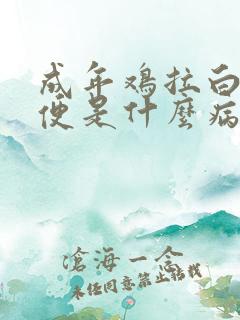 成年鸡拉白
便是什麼病
滄海一念
未经同意禁止转载